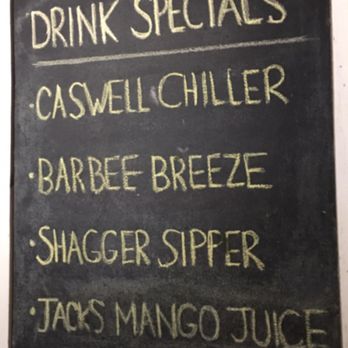 DRINK SPECIALS
· CASWELL CHILLER
· BARBEE BREEZE
· SHAGGER SIPPER
· JACKS MANGO JUICE